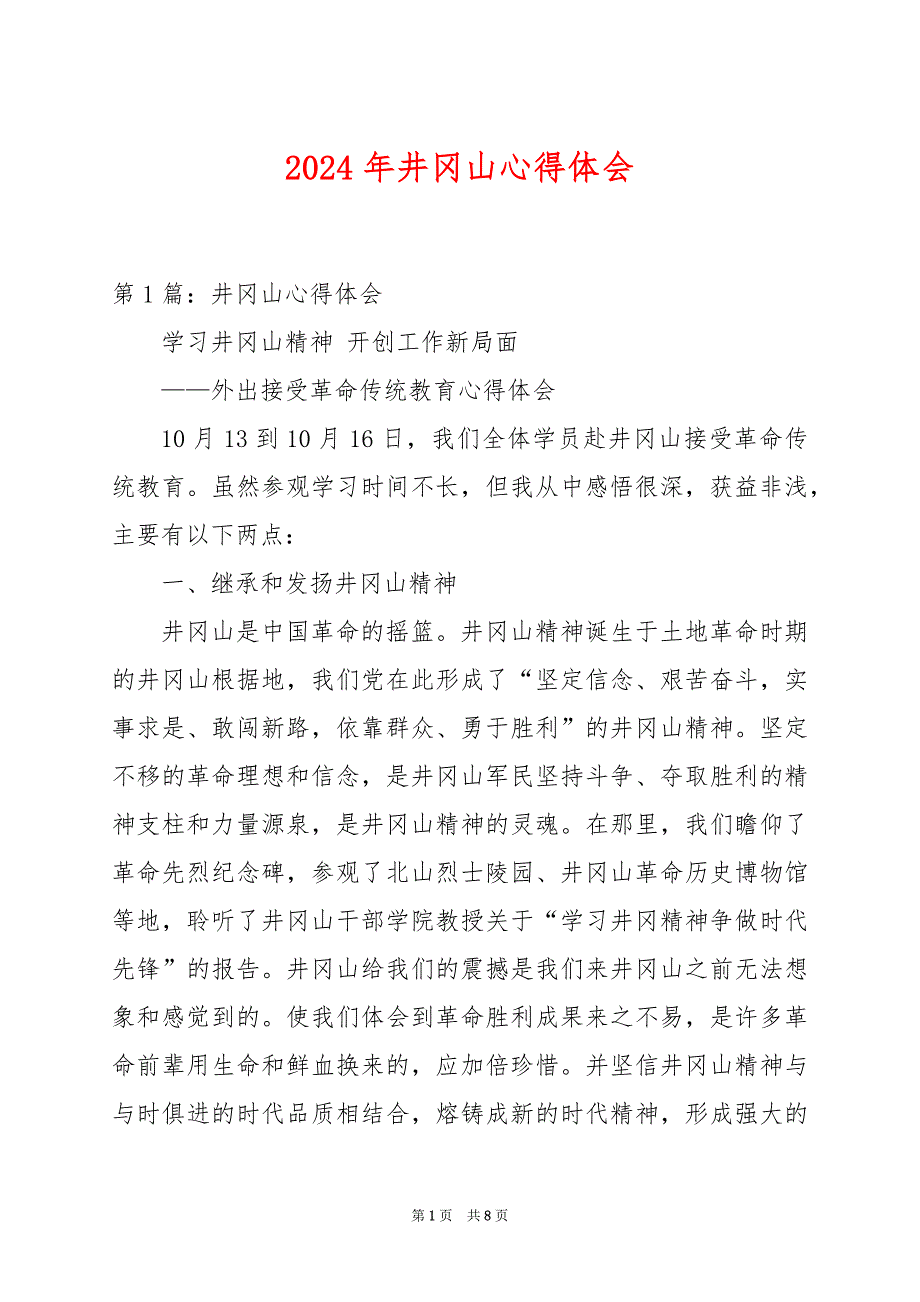 2024 年井冈山心得体会
第 1 篇：井冈山心得体会
学习井冈山精神 开创工作新局面
——外出接受革命传统教育心得体会
10 月 13 到 10 月 16 日，我们全体学员赴井冈山接受革命传
统教育。虽然参观学习时间不长，但我从中感悟很深，获益非浅，
主要有以下两点：
一、继承和发扬井冈山精神
井冈山是中国革命的摇篮。井冈山精神诞生于土地革命时期
的井冈山根据地，我们党在此形成了“坚定信念、艰苦奋斗，实
事求是、敢闯新路，依靠群众、勇于胜利”的井冈山精神。坚定
不移的革命理想和信念，是井冈山军民坚持斗争、夺取胜利的精
神支柱和力量源泉，是井冈山精神的灵魂。在那里，我们瞻仰了
革命先烈纪念碑，参观了北山烈士陵园、井冈山革命历史博物馆
等地，聆听了井冈山干部学院教授关于“学习井冈精神争做时代
先锋”的报告。井冈山给我们的震撼是我们来井冈山之前无法想
象和感觉到的。使我们体会到革命胜利成果来之不易，是许多革
命前辈用生命和鲜血换来的，应加倍珍惜。并坚信井冈山精神与
与时俱进的时代品质相结合，熔铸成新的时代精神，形成强大的
第 1 页 共 8 页